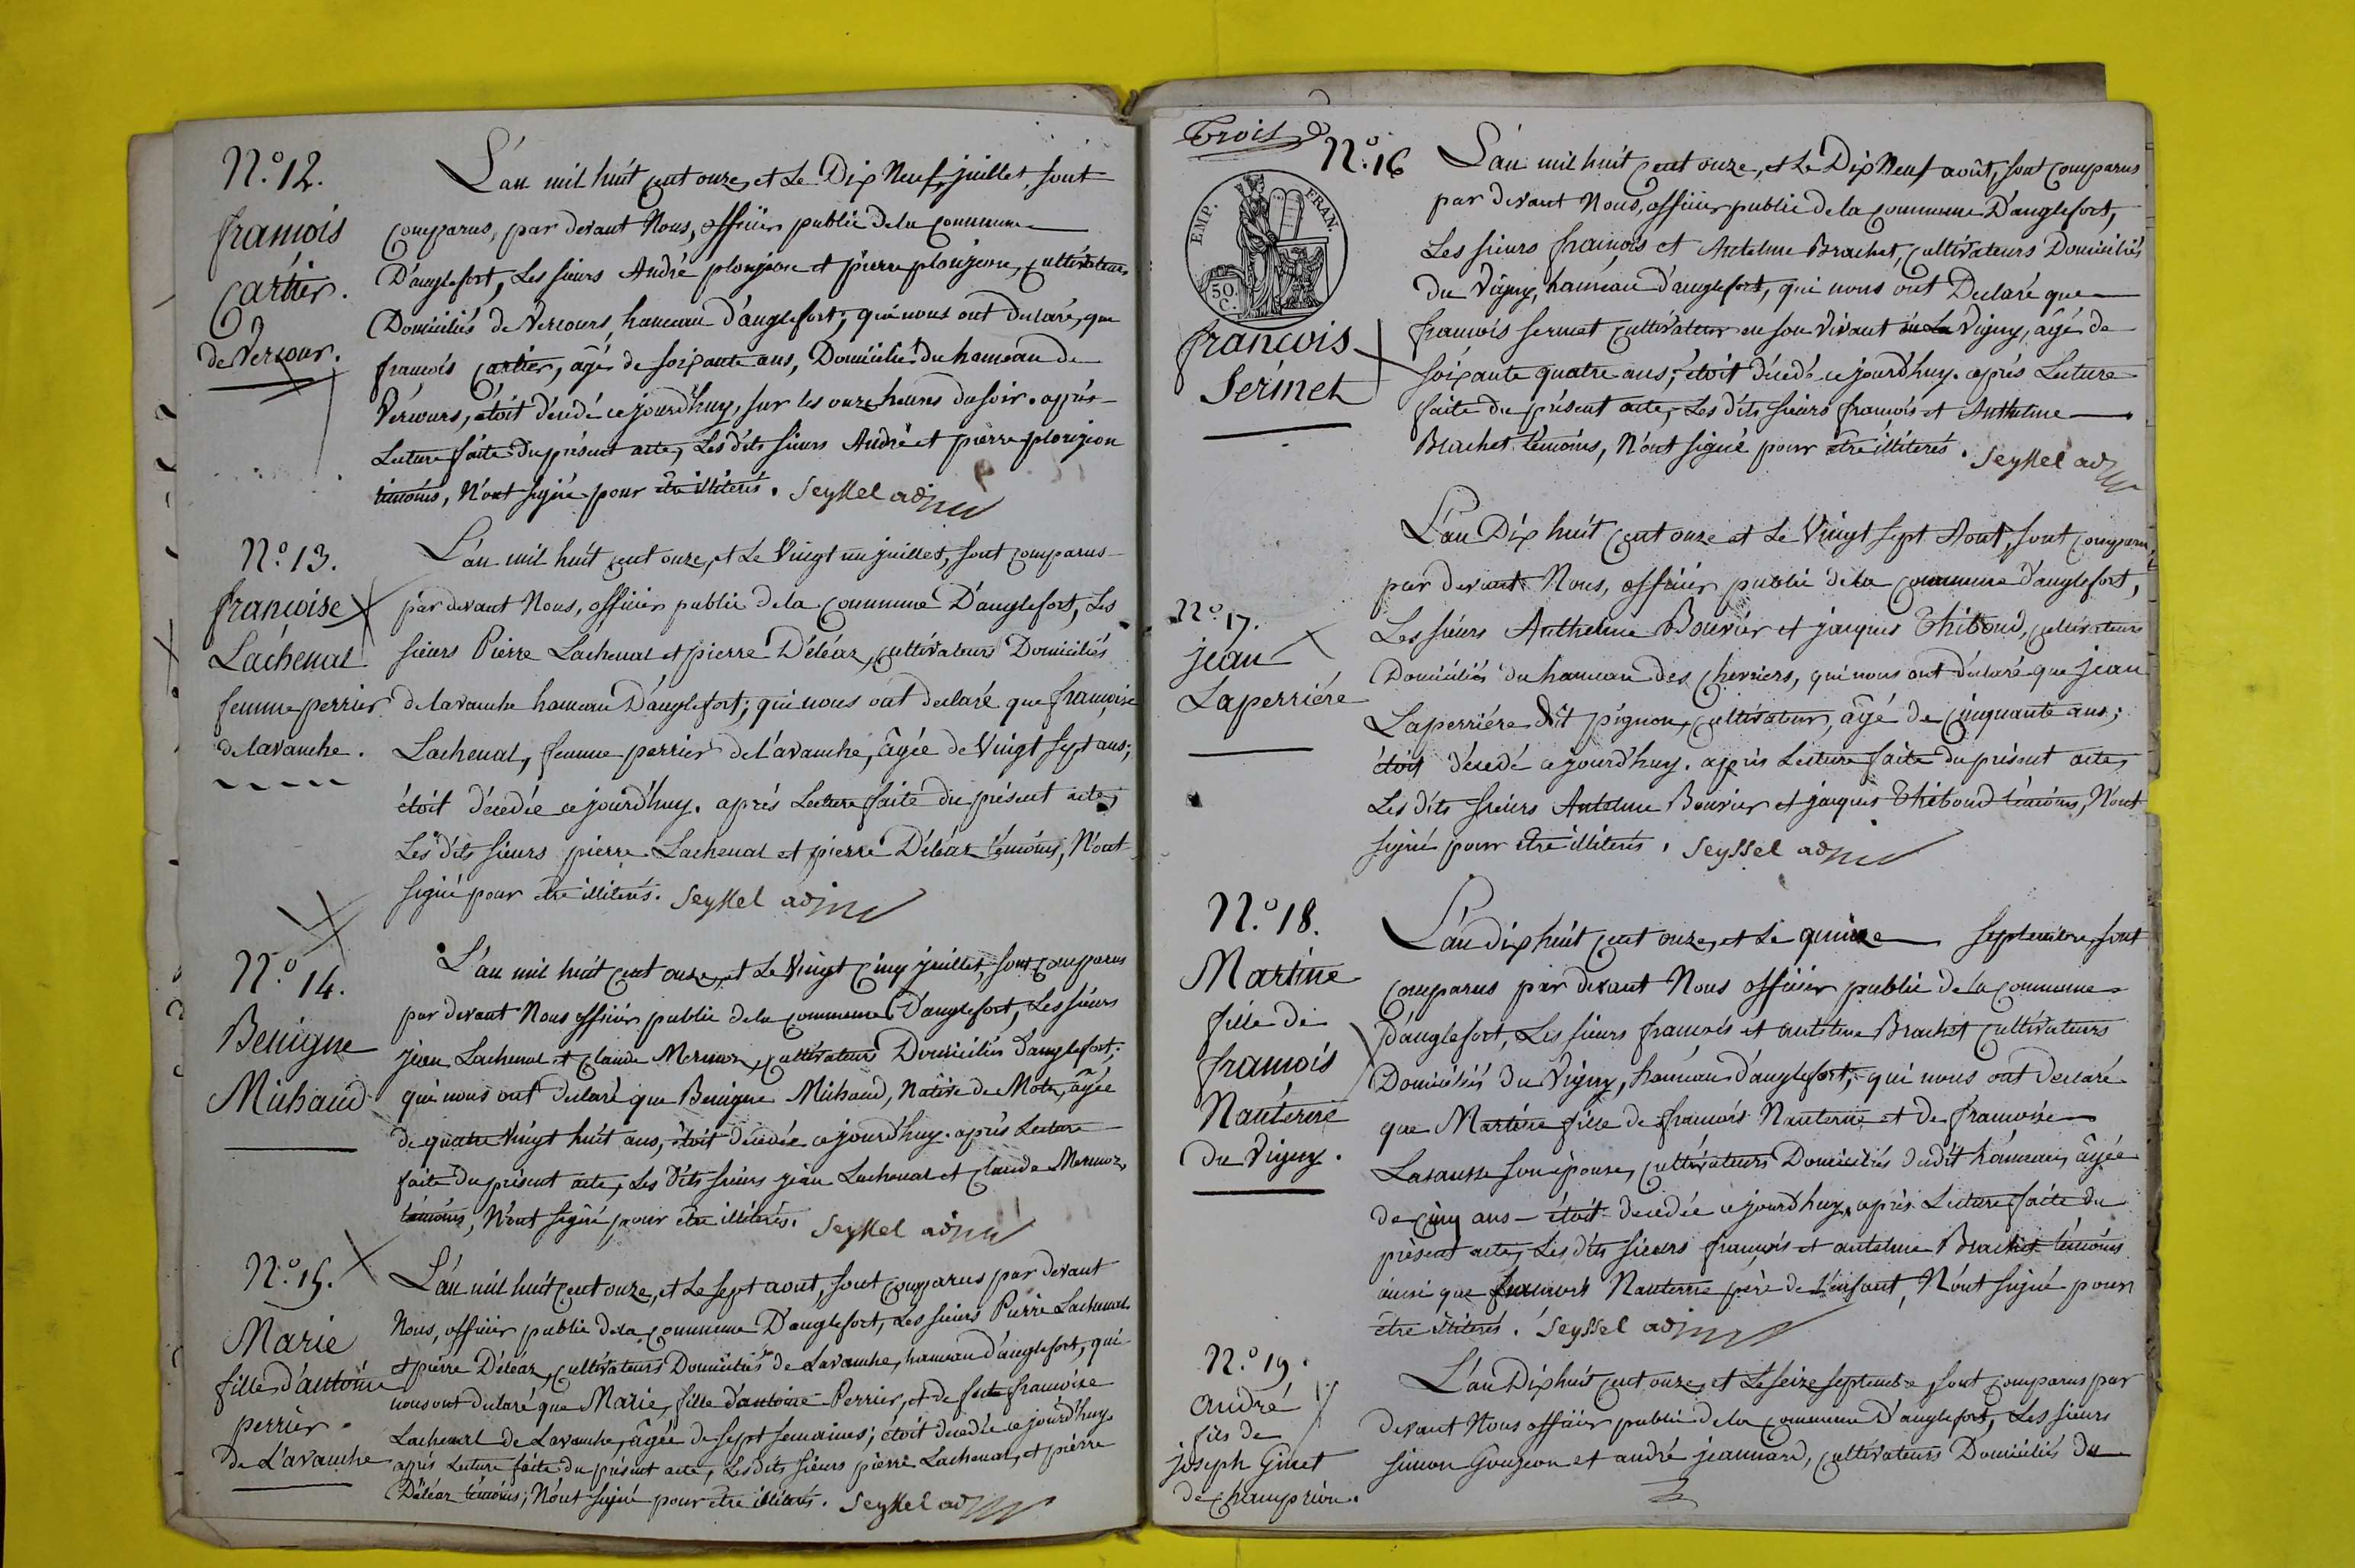 N.o 12.
francois
Cartier.
de Vercour.
L'an mil huit cent onze, et le Dix Neuf, juillet, sont
comparus, par devant Nous, officier public de la commune
D'anglefort, Les sieurs André plonjeon et pierre plonjeon, cultivateurs
Domiciliés de Vercours, hameau d'anglefort; qui nous ont declaré, que
francois Cartier, âgé de soixante ans, Domicilié du hameau de
Vércours, étoit décédé ce jourd'huy, sur les onze heures du soir. après
Lecture faite du présent acte, Les dits sieurs André et pierre plonjeon
témoins, N'ont signé pour être illiterés. Seyssel adjoint
N.o 13.
francoise
Lachenal
femme perrier
de lavanche.
L'an mil huit cent onze, et Le Vingt un juillet, sont comparus
par devant Nous, officier public de la Commune D'anglefort, Les
sieurs Pierre Lachenal et pierre Déléaz, cultivateurs Domiciliés
de lavanche hameau D'anglefort; qui nous ont declaré que francoise
Lachenal, femme perrier de l'avanche, âgée de Vingt sept ans;
étoit décédée ce jourd'huy. aprés Lecture faite du présent acte,
Les dits sieurs pierre Lachenal et pierre Déléaz témoins, N'ont
signé pour être illiterés. Seyssel adjoint
N.o 14.
Benigne
Michaud
L'an mil huit cent onze, et Le Vingt cinq juillet, sont comparus
par devant Nous officier public de la commune D'anglefort, Les sieurs
jean Lachenal et Claude Mermoz, cultivateurs Domiciliés d'anglefort;
qui nous ont declaré que Benigne Michaud, Native de Motz, âgée
de quatre Vingt huit ans, étoit décédée ce jourd'huy. après Lecture
faite du présent acte, Les dits sieurs jean Lachenal et Claude Mermoz,
témoins, N'ont signé pour être illiterés. Seyssel adjoint
N.o 15.
Marie
fille d'antoine
perrier.
de L'avanche
L'an mil huit cent onze, et Le sept aout, sont comparus par devant
Nous, officier public de la commune D'anglefort, Les sieurs Pierre Lachenal
et pierre Déléaz, cultivateurs Domiciliés de Lavanche, hameau d'anglefort, qui
nous ont declaré que Marie, fille d'antoine Perrier, et de feüe francoise
Lachenal de Lavanche, âgée de sept semaines; étoit décédée ce jourd'huy.
aprés Lecture faite du présent acte, Les dits sieurs pierre Lachenal, et pierre
Déléaz témoins; N'ont signé pour être illiterés. Seyssel adjoint
Trois
EMP. FRAN.
50 C.
N.o 16
francois
Sermet
L'an mil huit cent onze, et Le Dix Neuf août, sont comparus
par devant Nous, officier public de la commune D'anglefort,
Les sieurs francois et Antelme Brachet, cultivateurs Domiciliés
du Vigny, hameau d'anglefort, qui nous ont Declaré que
francois sermet cultivateur en son Vivant Vigny, âgé de
soixante quatre ans; étoit décédé ce jourd'huy. aprés Lecture
faite du présent acte, Les dits sieurs francois et Anthelme
Brachet témoins, N'ont signé pour être illiterés. Seyssel adjoint
N.o 17.
jean
Laperriére
L'an Dix huit cent onze et Le Vingt sept Aout, sont comparus
par devant Nous, officier public de la commune d'anglefort,
Les sieurs Anthelme Bouvier et jacques Thiboud, cultivateurs
Domiciliés du hameau des Cherriers, qui nous ont déclaré que jean
Laperriére dit pignon, cultivateur, âgé de cinquante ans;
étoit décedé ce jourd'huy. après Lecture faite du présent acte,
Les dits sieurs Antelme Bouvier et jacques Thiboud témoins, N'ont
signé pour être illiterés. Seyssel adjoint
N.o 18.
Martine
fille de
francois
Nanterne
du Vigny.
L'an dix huit cent onze, et Le quinze septembre, sont
comparus par devant Nous officier public de la commune
d'anglefort, Les sieurs francois et antelme Brachet cultivateurs
Domiciliés du Vigny, hameau d'anglefort; qui nous ont declaré
que Martine fille de francois Nanterne et de francoise
Lasausse son épouse, cultivateurs Domiciliés dudit hameau, âgée
de cinq ans étoit decédée ce jourd'huy, après Lecture faite du
présent acte, Les dits sieurs francois et antelme Brachet témoins
ainsi que francois Nanterne père de L'enfant, N'ont signé pour
être illiterés. Seyssel adjoint
N.o 19.
André
fils de
joseph Ginet
de Champrion.
L'an Dix huit cent onze, et Le seize septembre, sont comparus par
devant Nous officier public de la commune D'anglefort, Les sieurs
simon Goujeon et andré jeannard, cultivateurs Domiciliés du